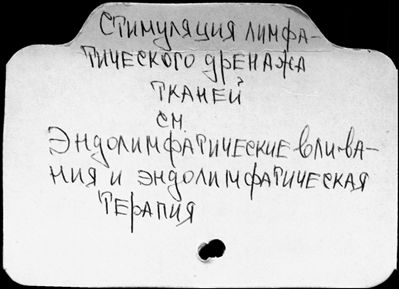 Стимуляция лимфа-
тического дренажа
тканей
см.
Эндолимфатические влива-
ния и эндолимфатическая
терапия